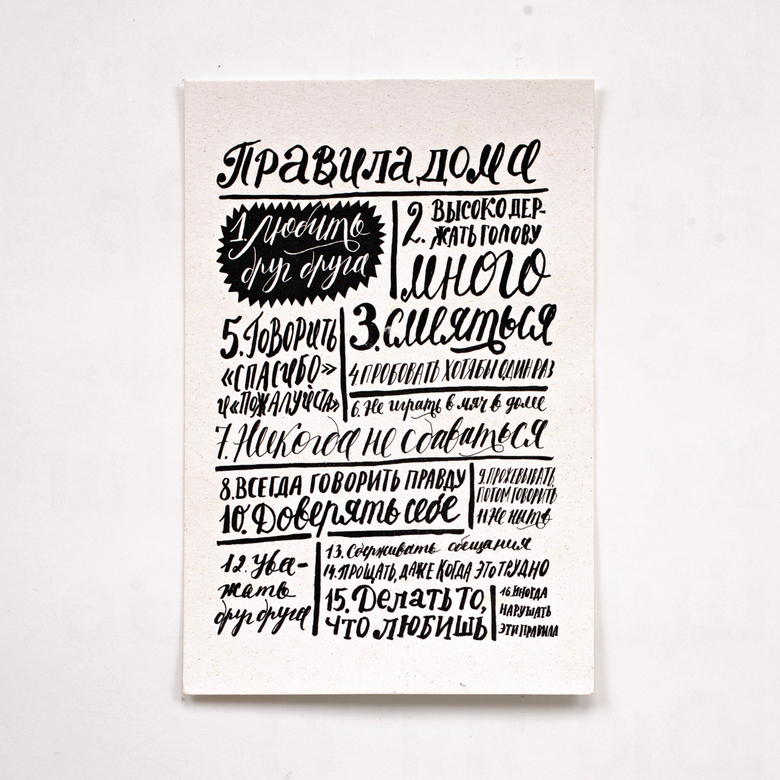 Правила дома
1 Любить
друг друга
2. ВЫСОКО ДЕР-
ЖАТЬ ГОЛОВУ
много
3. смеяться
4 ПРОБОВАТЬ ХОТЯ БЫ ОДИН РАЗ
5. ГОВОРИТЬ
«СПАСИБО»
и «ПОЖАЛУЙСТА»
6. Не играть в мяч в доме
7. Никогда не сдаваться
8. ВСЕГДА ГОВОРИТЬ ПРАВДУ
9. ПРОЖЕВЫВАТЬ,
ПОТОМ ГОВОРИТЬ
10. Доверять себе
11 Не ныть
12. Ува-
жать
друг друга
13. Сдерживать обещания
14. ПРОЩАТЬ, ДАЖЕ КОГДА ЭТО ТРУДНО
15. Делать то,
ЧТО ЛЮБИШЬ
16. ИНОГДА
НАРУШАТЬ
ЭТИ ПРАВИЛА